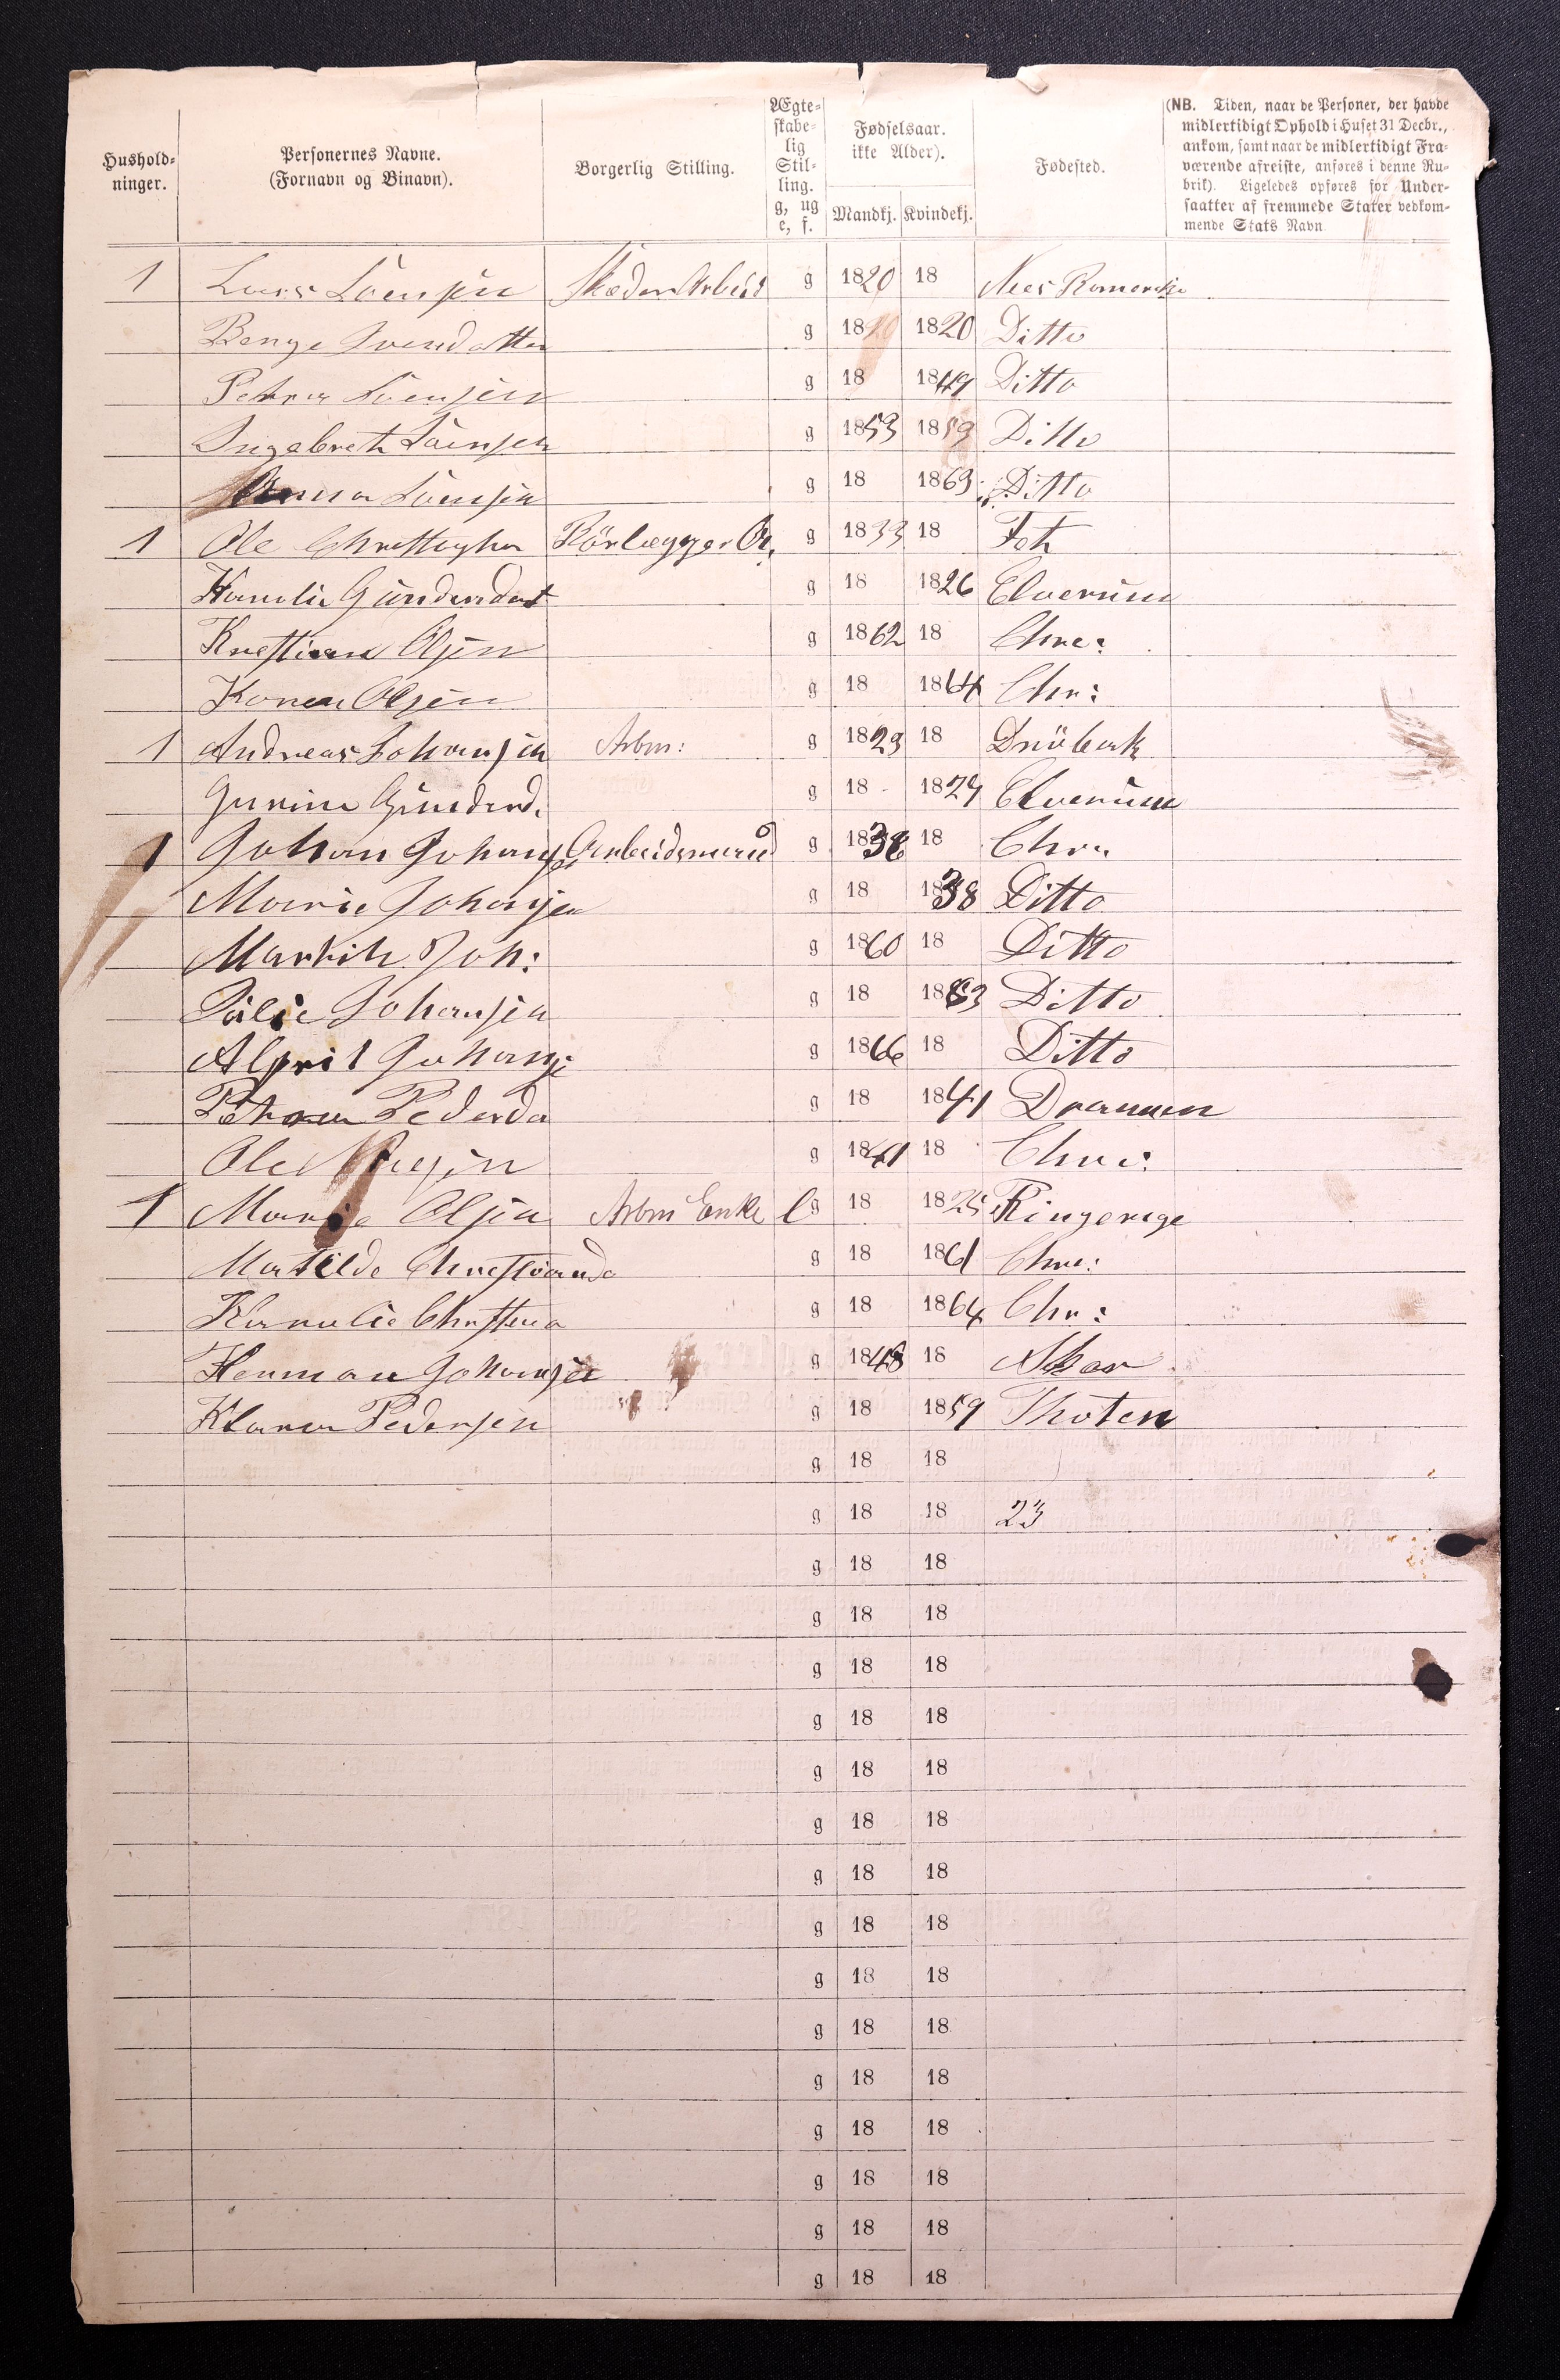 Hushold-ninger. | Personernes Navne. (Fornavn og Binavn). | Borgerlig Stilling. | Ægte-skabe-lig Stil-ling. g, ug e, f. | Fødselsaar. ikke Alder). Mandkj. Kvindekj. | Fødested. | (NB. Tiden, naar de Personer, der havde midlertidigt Ophold i Huset 31 Decbr., ankom, samt naar de midlertidigt Fra-værende afreiste, anføres i denne Ru-brik). Ligeledes opføres for Under-saatter af fremmede Stater vedkom-mende Stats Navn.
1 Lars Lösensen g 1820 18 Nes Romerike
Svendatter g 18 1820 Ditto
Petra g 18 1849 Ditto
Ingebreth g 1853 1859 Ditto
Anna g 18 1863 Ditto
1 Ole Rörlægger g 1833 18 Fet
g 18 1826 Elverum
Kristian Olsen g 1862 18 Chre:
Karen Olsen g 18 1864 Chr:
1 Andreas Johansen Arbm: g 1829 18 Dröbak
Gurine Gunderd. g 18 18 Elverum
1 Johan Johansen Arbeidsmand g 1838 18 Chr:
Marie Johansen g 18 1838 Ditto
Joh: g 1860 18 Ditto
Julie Johansen g 18 1863 Ditto
Johans g 1866 18 Ditto
Pederda g 18 1841 Dramen
Ole g 1841 18 Chri:
1 Marie Olsen Arbm Enke e g 18 1825 Ringerige
Matilde g 18 1861 Chri:
g 18 1864 Chr:
Herman Johansen g 1848 18 Asker
Klara Pedersen g 18 1859 Thoten
g 18 18
g 18 18 23
g 18 18
g 18 18
g 18 18
g 18 18
g 18 18
g 18 18
g 18 18
g 18 18
g 18 18
g 18 18
g 18 18
g 18 18
g 18 18
g 18 18
g 18 18